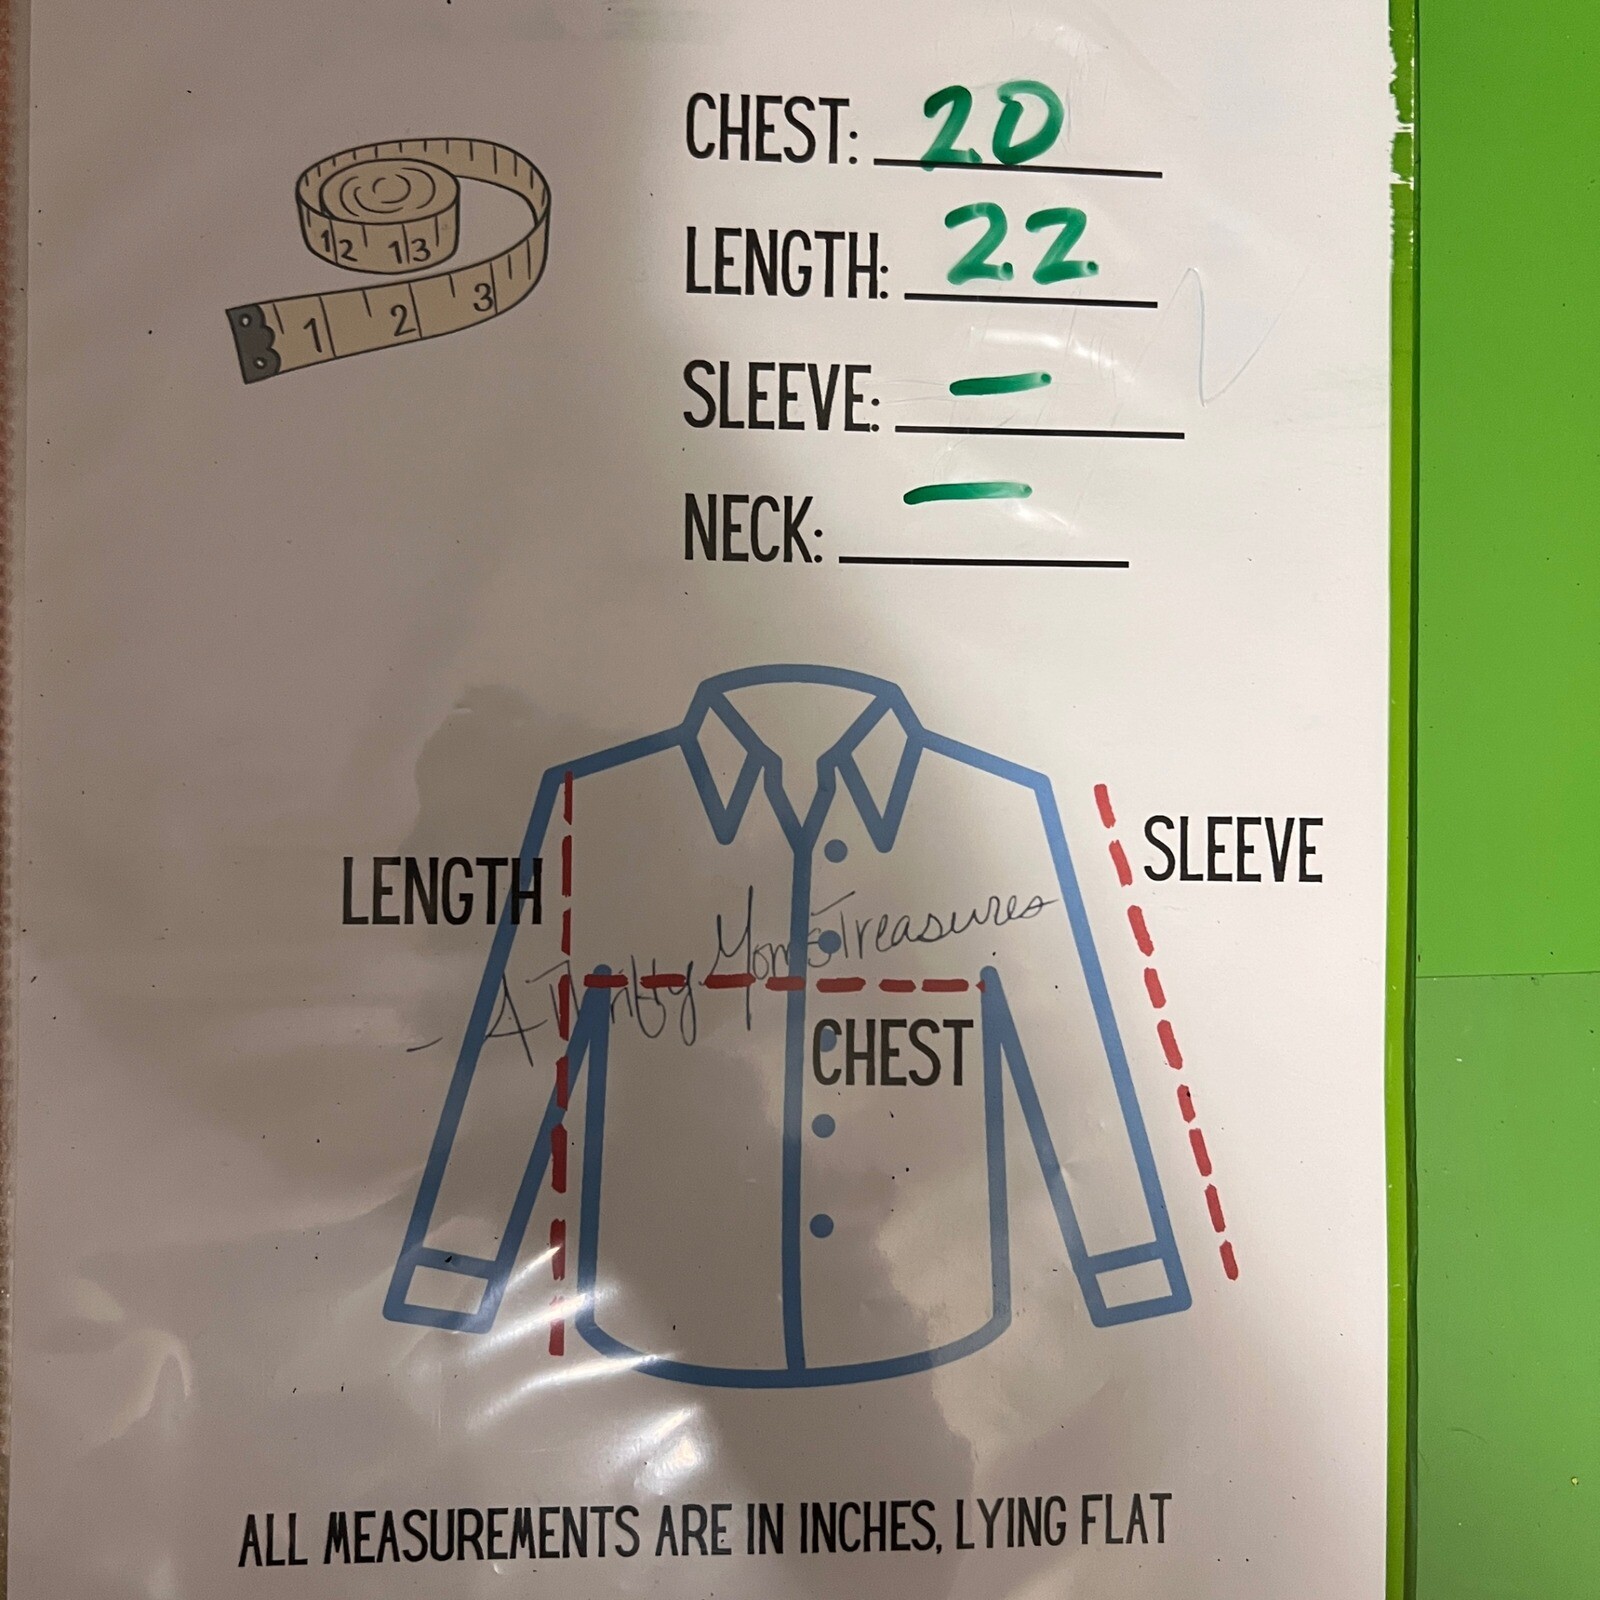 CHEST: 20
LENGTH: 22
SLEEVE: —
NECK: —
12 13
1 2 3
LENGTH
SLEEVE
- A Thrifty Mom's Treasures
CHEST
ALL MEASUREMENTS ARE IN INCHES, LYING FLAT